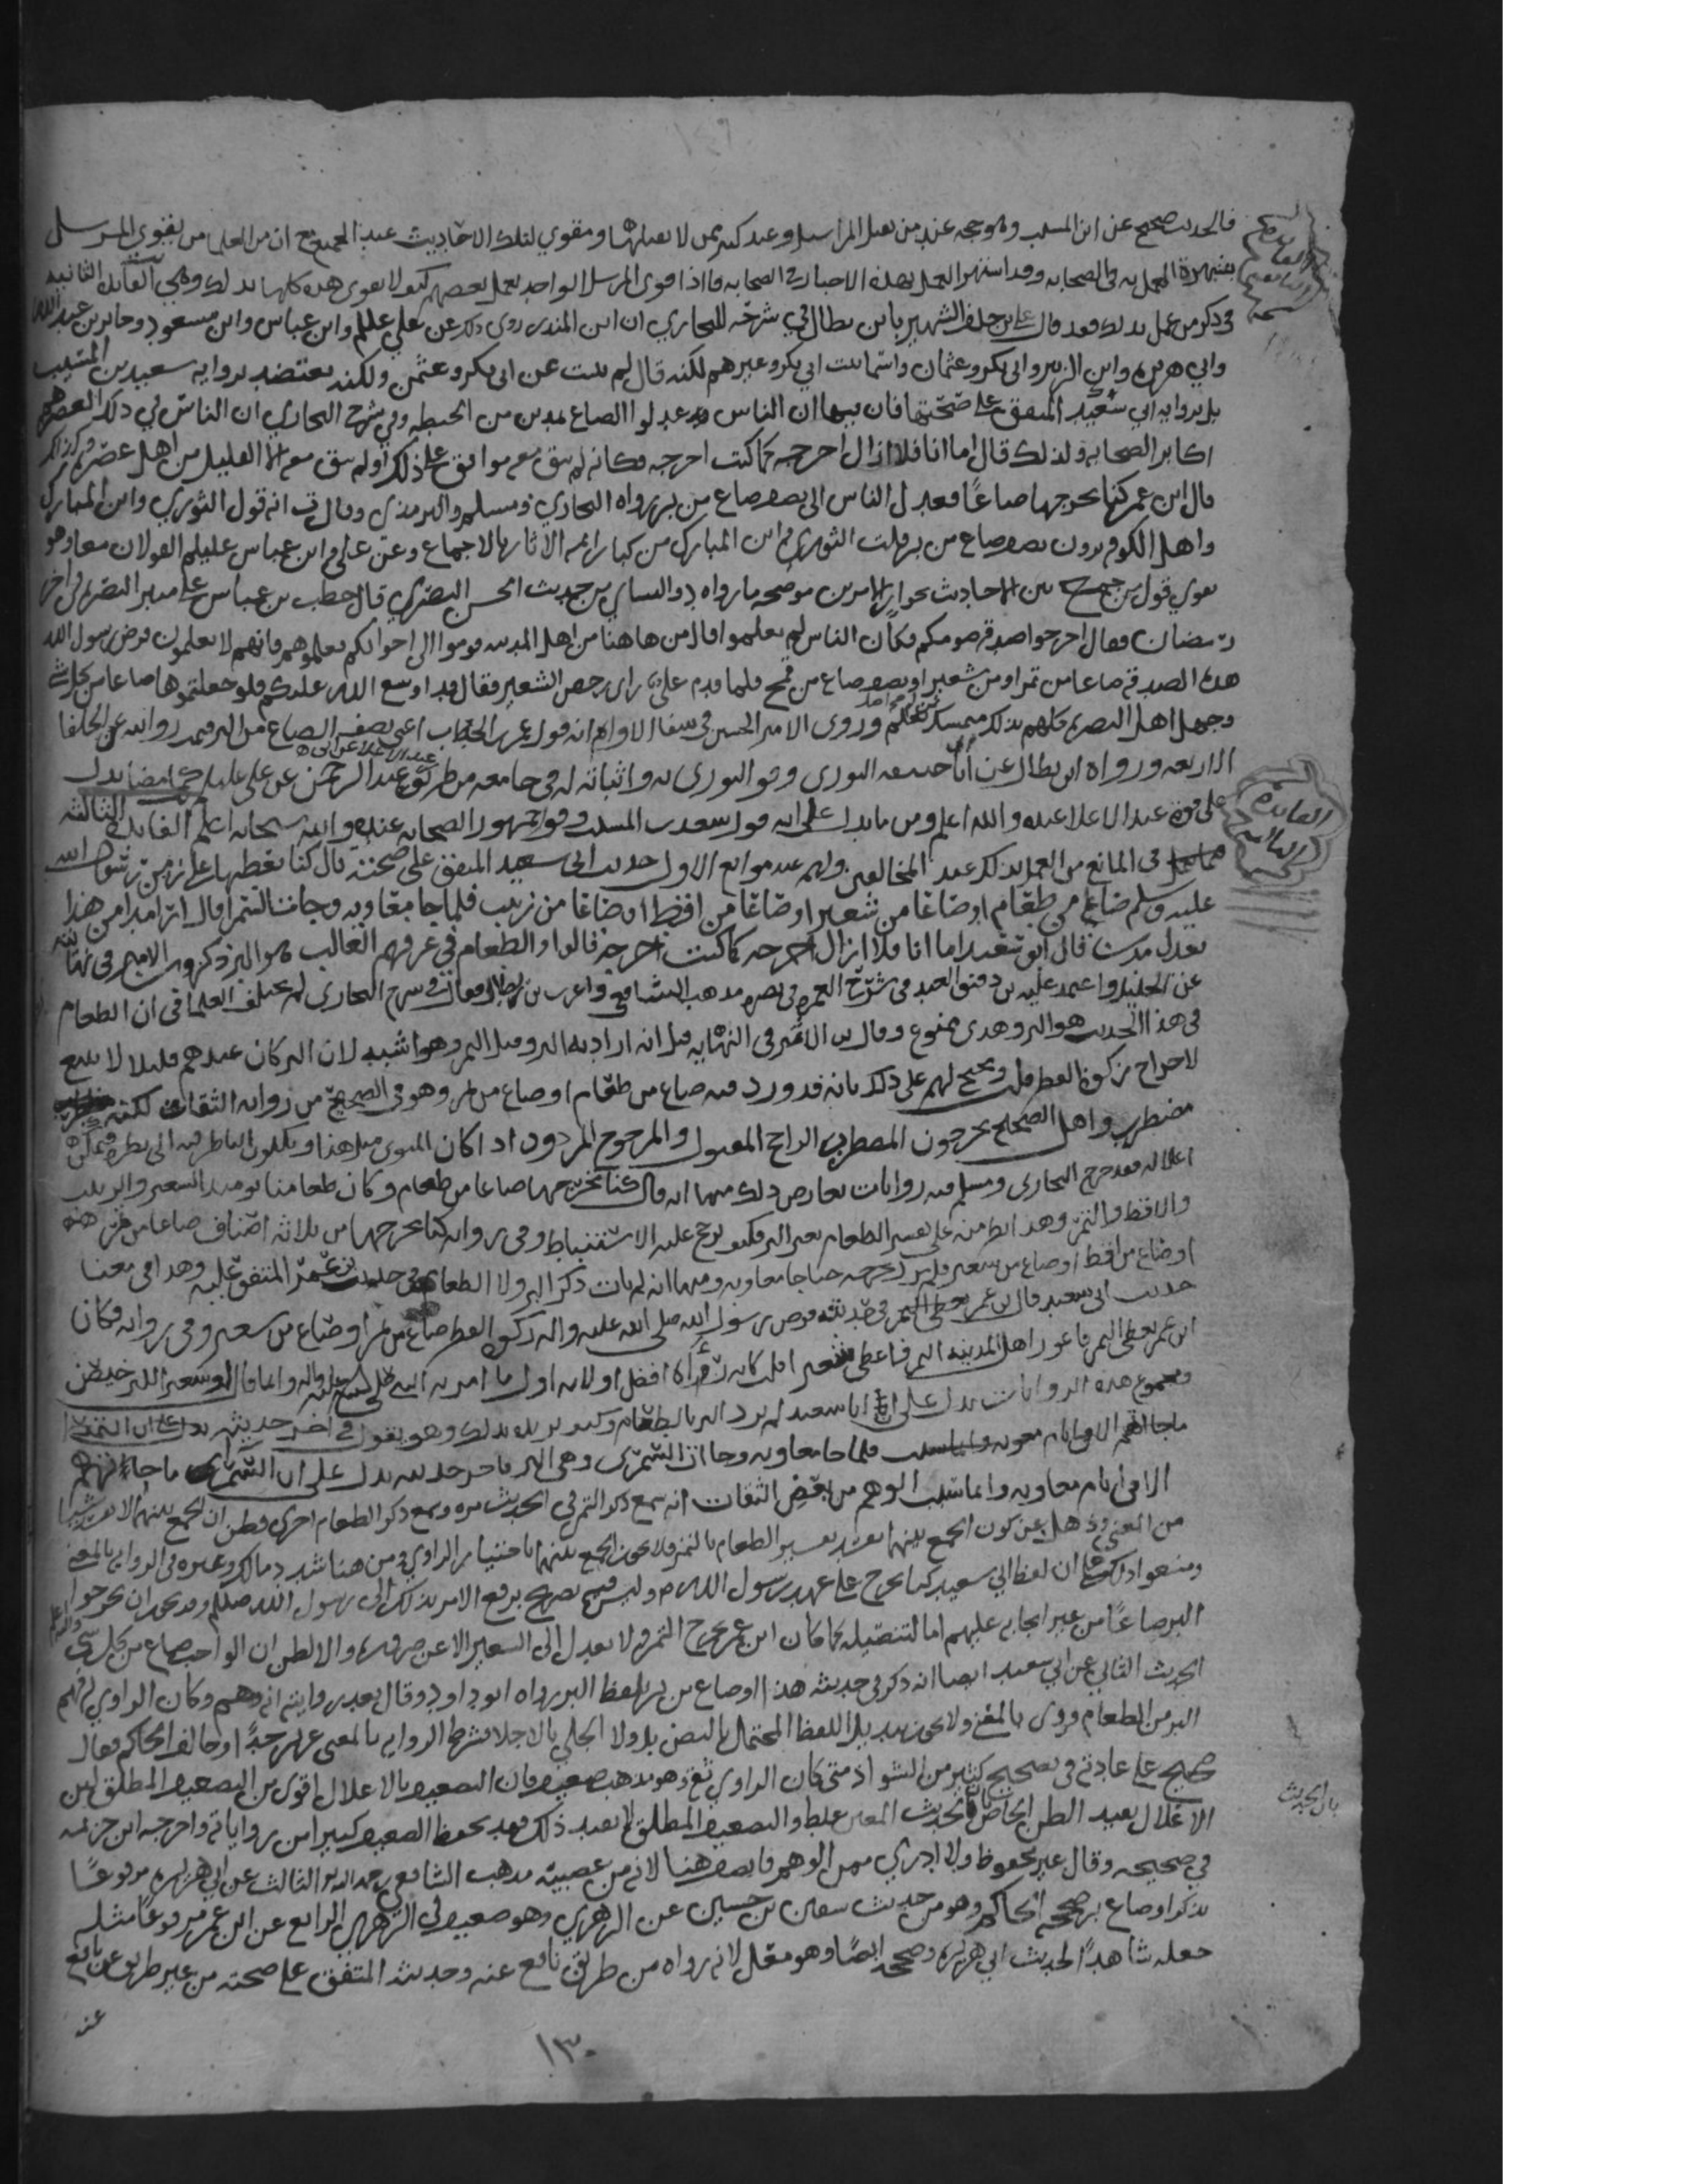 فالحديث صحيح عن ابن المسيب وهو حجه عند من يقبل المراسيل وعند كثير ممن لا يقبلها ومقوي لتلك الاحاديث عند الجميع ان من العلما من يقوي المرسل
بشهرة العمل به في الصحابه وقد اشتهر العمل بهذه الاخبار في الصحابه فاذا قوى المرسل الواحد بعمل بعضهم كيف لا يقوى هذه كلها بذلك وهي الفائدة الثانيه
في ذكر من عمل بذلك فقد قال علي بن خلف الشهير بابن بطال في شرحه للبخاري ان ابن المنذر روى ذلك عن علي عليلم وابن عباس وابن مسعود وجابر بن عبد الله
وابي هريره وابن الزبير وابي بكر وعثمان واسما بنت ابي بكر وغيرهم لكنه قال لم يثبت عن ابي بكر وعثمن ولكنه يعتضد بروايه سعيد بن المسيب
بل بروايه ابي سعيد المتفق على صحتها فان فيها ان الناس عدلوا الصاع بمدين من الحنطه وفي شرح البخاري ان الناس في ذلك العصر هم
اكابر الصحابه ولذلك قال اما انا فلا ازال اخرجه كما كنت اخرجه فكانه لم يبق معه موافق على ذلك او لم يبق معه الا القليل من اهل عصره
قال ابن عمر كنا نخرجها صاعا فعدل الناس الى نصف صاع من بر رواه البخاري ومسلم والترمذي وقال ت انه قول الثوري وابن المبارك
واهل الكوفه يرون نصف صاع من بر قلت الثوري وابن المبارك من كبار ايمه الاثار بالاجماع وعن علي وابن عباس عليلم القولان معا وهو
يقوي قول من جمع بين الاحاديث بجواز الامرين موضحه ما رواه د والنساي من حديث الحسن البصري قال خطب بن عباس على منبر البصره في اخر
رمضان فقال اخرجوا صدقه صومكم فكأن الناس لم يعلموا قال من هاهنا من اهل المدينه قوموا الى اخوانكم فعلموهم فانهم لا يعلمون فرض رسول الله
هذه الصدقه صاعا من تمر او من شعير او نصف صاع من قمح فلما قدم علي راى رخص الشعير فقال قد اوسع الله عليكم فلو جعلتموها صاعا من كل شي
وجهل اهل البصره كلهم بذلك وروى الامير الحسين في شفا الاوام انه قول عمر بن الخطاب اعني نصف الصاع من البر فهذه روايته عن الخلفا
الاربعه ورواه ابن بطال عن ابي حنيفه الثوري وقو الثوري به واثباته له في جامعه من طريق عبد الرحمن عن علي عليلم
على قوة عبد الاعلا عنده والله اعلم ومن ما يدل على انه قول سعيد بن المسيب وقول جمهور الصحابه عنده والله سبحانه اعلم الفائدة الثالثه
في المانع من العمل بذلك عند المخالفين ولهم عده موانع الاول حديث ابي سعيد المتفق على صحته قال كنا نعطيها على زمن رسول الله
عليه وسلم صاعا من طعام او صاعا من شعير او صاعا من اقط او صاعا من زبيب فلما جا معاويه وجات السمرا قال ارى مدا من هذا
يعدل مدين قال ابو سعيد اما انا فلا ازال اخرجه كما كنت اخرجه قالوا والطعام في عرفهم الغالب هو البر ذكره بن الاثير في نهايته
عن الخليل واعتمد عليه بن دقيق العيد في شرح العمده في نصره مذهب الشافعي واغرب بن بطال فقال في شرح البخاري لم يختلف العلما في ان الطعام
في هذا الحديث هو البر وهذى ممنوع وقال بن الاثير في النهايه قيل انه اراد به البر وقيل التمر وهو اشبه لان البر كان عندهم قليلا لا يتسع
لاخراج زكوة الفطر قلت ويحتج لهم على ذلك بانه قد ورد فيه صاع من طعام او صاع من تمر وهو في الصحيح من روايه الثقات لكنه
مضطرب واهل الصحيح يخرجون المضطرب الراجح المقبول والمرجوح المردود اذا كان المتوى مثل هذا ويكلون الناظر فيه الى نظره
اعلاله فقد خرج البخاري ومسلم فيه روايات تعارض ذلك منها انه قال كنا نخرجها صاعا من طعام وكان طعامنا يومئذ الشعير والزبيب
والاقط والتمر وهذا نص منه على تفسير الطعام بغير البر فكيف يرجح عليه الاستنباط وفي روايه كنا نخرجها من ثلاثه اصناف صاعا من تمر
او صاع من اقط او صاع من شعير فلم نزل نخرجه حتى جا معاويه ومنها انه لم يات ذكر البر ولا الطعام في حديث بن عمر المتفق عليه وهذا في معنا
حديث ابي سعيد قال بن عمر في حديثه فرض رسول الله صلى الله عليه واله زكوة الفطر صاع من تمر او صاع من شعير وفي روايه فكان
ابن عمر يعطي التمر فاعوز اهل المدينه التمر فاعطى شعير
ومجموع هذه الروايات يدل على ان ابا سعيد لم يرد البر بالطعام وكيف يريده بذلك وهو يقول في اخر حديثه
فلما جا معاويه وجات السمرى وهي البر فاخر حديثه يدل على ان السمرى ما جاتهم
الا في ايام معاويه وانما سبب الوهم من بعض الثقات انه سمع ذكر التمر في الحديث مره وسمع ذكر الطعام اخرى فظن ان الجمع بينهما لا يغير شيا
من المعنى وذهل عن كون الجمع بينهما يفيد تفسير الطعام بالتمر فلا يجوز الجمع بينهما باختيار الراوي ومن هنا شدد مالك وغيره في الروايه بالمعنى
ومنعوا ذلك على ان لفظ ابي سعيد كنا نخرج على عهد رسول الله صلم وليس فيه تصريح برفع الامر بذلك الى رسول الله صللم وقد يجوز ان يخرجوا
البر صاعا من غير ايجابه عليهم اما لتفضيله كما كان ابن عمر يخرج التمر ولا يعدل الى الشعير الا عن ضروره والا لظن ان الواجب صاع من كل شي
الحديث الثاني عن ابي سعيد ايضا انه ذكر في حديثه هذا او صاع من بر بلفظ البر رواه ابو داود وقال بعد روايته انه وهم وكان الراوي فهم
البر من الطعام فروى بالمعنى ولا يجوز تبديل اللفظ المحتمل بالنص بل ولا الجلي بالاجلا فشرط الروايه بالمعنى عزيز جدا وخالف الحاكم فقال
صحيح على عادته في تصحيح كثير من الشواذ متى كان الراوي ثقه وهو مذهب ضعيف فان التضعيف بالاعلال اقوى من التضعيف المطلق لان
الاعلال يفيد الظن الخاص بان الحديث المعين غلط والتضعيف المطلق لا يفيد ذلك فقد يحفظ الضعيف كثيرا من رواياته واخرجه ابن خزيمه
في صحيحه وقال غير محفوظ ولا ادري ممن الوهم فانصف هنا لانه من عصبيه مذهب الشافعي رحمه الله الثالث عن ابي هريره مرفوعا
بذكر او صاع بر صححه الحاكم وهو من حديث سفين بن حسين عن الزهري وهو ضعيف في الزهري الرابع عن ابن عمر مرفوعا مثله
جعله شاهدا لحديث ابي هريره وصححه ايضا وهو معل لانه رواه من طريق نافع عنه وحديثه المتفق على صحته من غير طريق عن نافع
عنه
١٣٠
الفائدة
الثانيه
الفائدة
الثالثه
بان الحديث